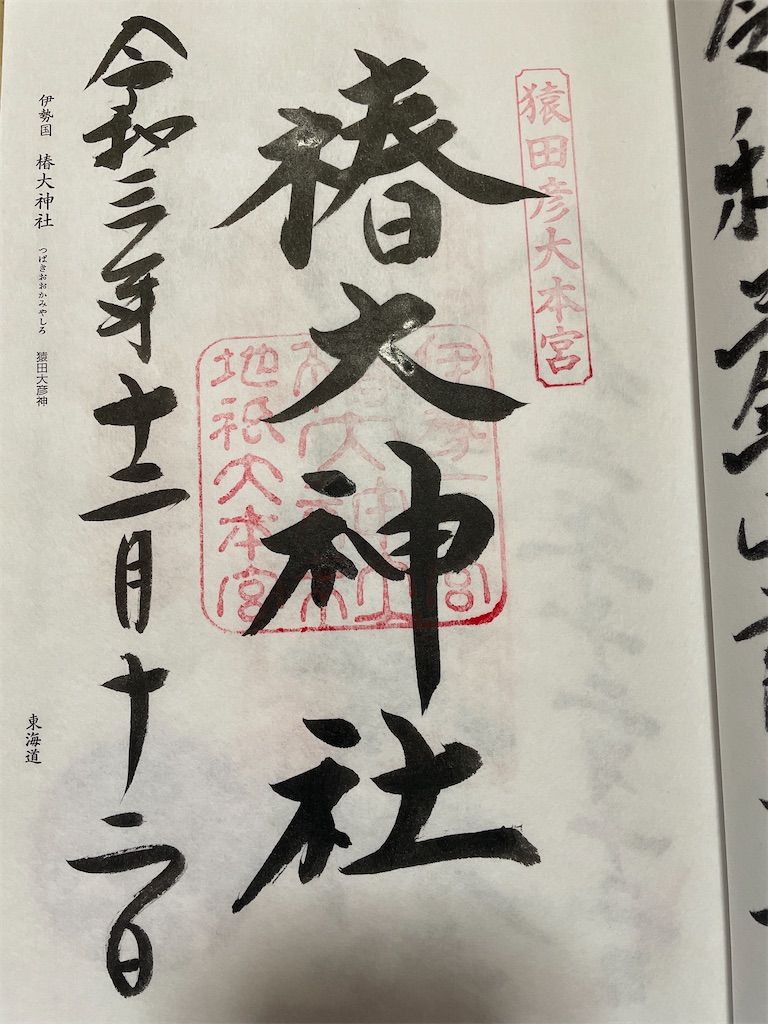 猿田彦大本宮
椿大神社
伊勢一宮
椿大神社
地祇大本宮
令和三年十二月十二日
伊勢国 椿大神社 つばきおおかみやしろ 猿田大彦神
東海道